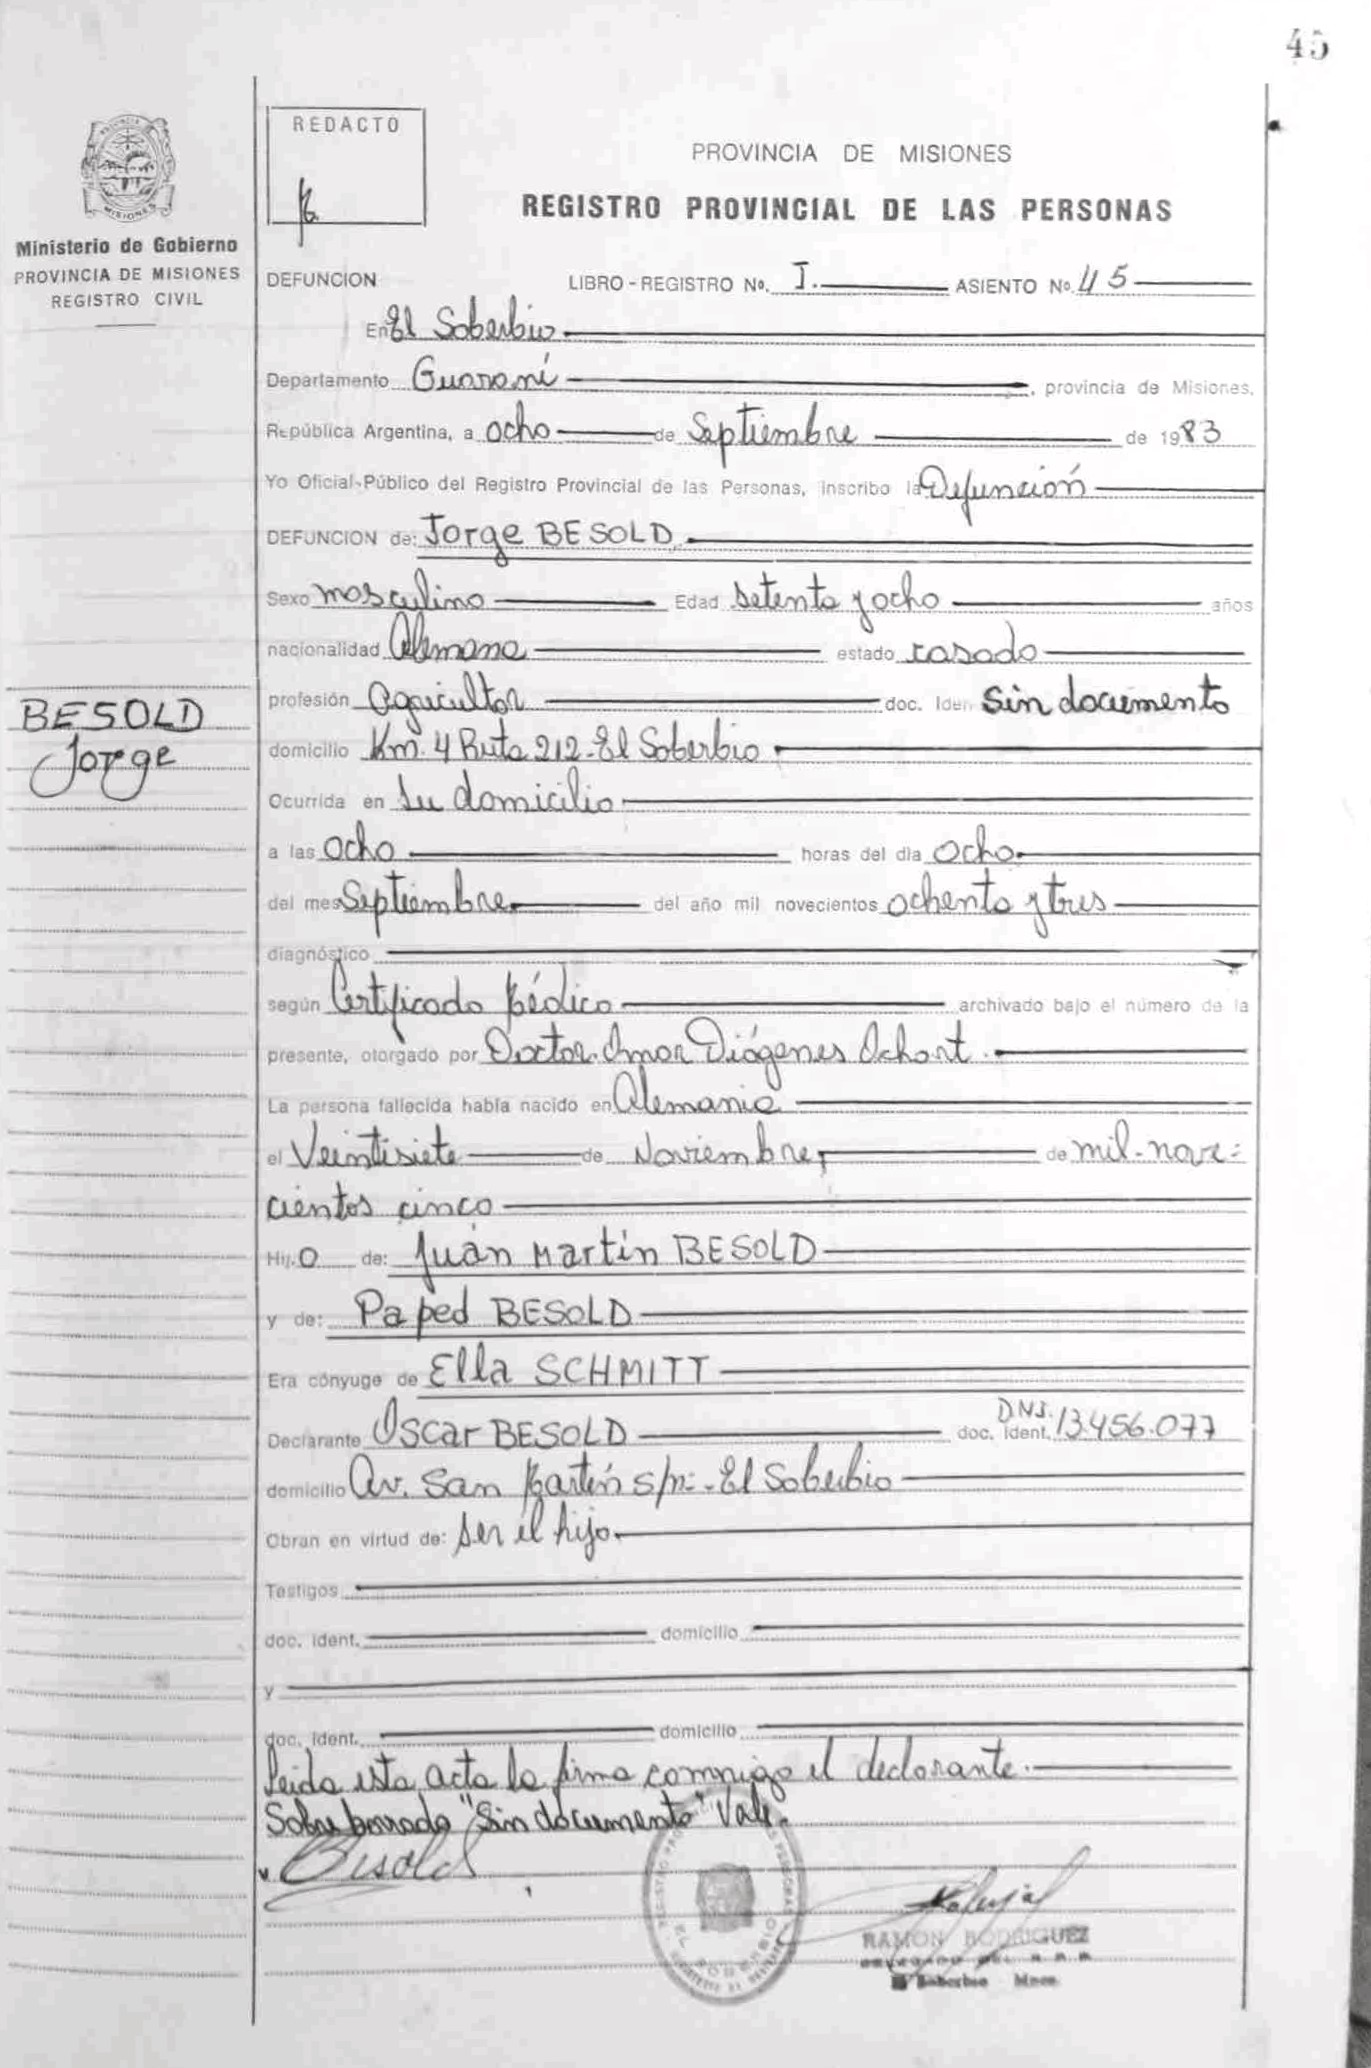 45
MISIONES
Ministerio de Gobierno
PROVINCIA DE MISIONES
REGISTRO CIVIL
REDACTO
PROVINCIA DE MISIONES
REGISTRO PROVINCIAL DE LAS PERSONAS
DEFUNCION LIBRO-REGISTRO Nº. I. ASIENTO Nº. 45
En El Soberbio
Departamento Guaraní, provincia de Misiones,
República Argentina, a ocho de Septiembre de 1983
Yo Oficial Público del Registro Provincial de las Personas, inscribo la Defunción
DEFUNCION de: Jorge BESOLD
Sexo masculino Edad setenta y ocho años
nacionalidad Alemana estado casado
profesión Agricultor doc. Iden Sin documento
BESOLD
Jorge
domicilio Km. 4 Ruta 212-El Soberbio
Ocurrida en su domicilio
a las ocho horas del día ocho
del mes Septiembre del año mil novecientos ochenta y tres
diagnóstico
según Certificado Médico archivado bajo el número de la
presente, otorgado por Doctor Omar Diógenes Ochort.
La persona fallecida había nacido en Alemania
el Veintisiete de Noviembre de mil-nove=
cientos cinco
Hij.o de: Juan Martín BESOLD
y de: Paped BESOLD
Era cónyuge de Ella SCHMITT
Declarante Oscar BESOLD doc. ident. D.N.I. 13.456.077
domicilio Av. San Martín s/n:-El Soberbio
Obran en virtud de: ser el hijo
Testigos
doc. ident. domicilio
y
doc. ident. domicilio
Leida esta acta la firma conmigo el declarante.
Sobre borrado "Sin documento" Vale.
Besold
EL SOBERBIO
RAMON RODRIGUEZ
El Soberbio Mnes.